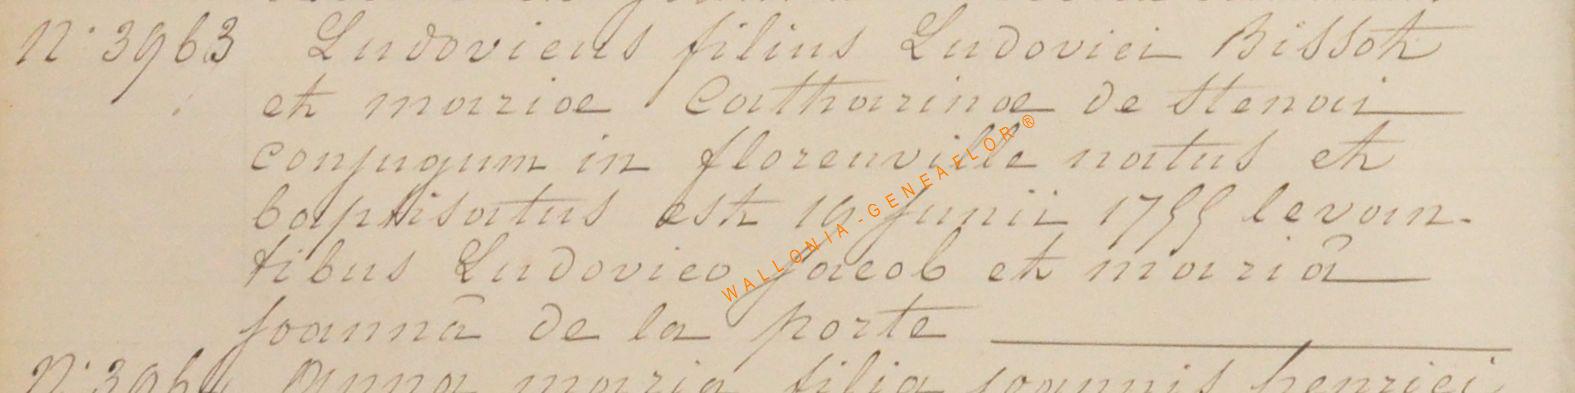 N° 3963 Ludovicus filius Ludovici Bissot
et mariæ Catharinæ de Stenai
conjugum in florenville natus et
baptisatus est 19 Junii 1755 levan-
tibus Ludovico Jacob et mariâ
joannâ de la porte
N° 3964 Anna maria filia joannis henrici
WALLONIA-GENEAFLOR ®